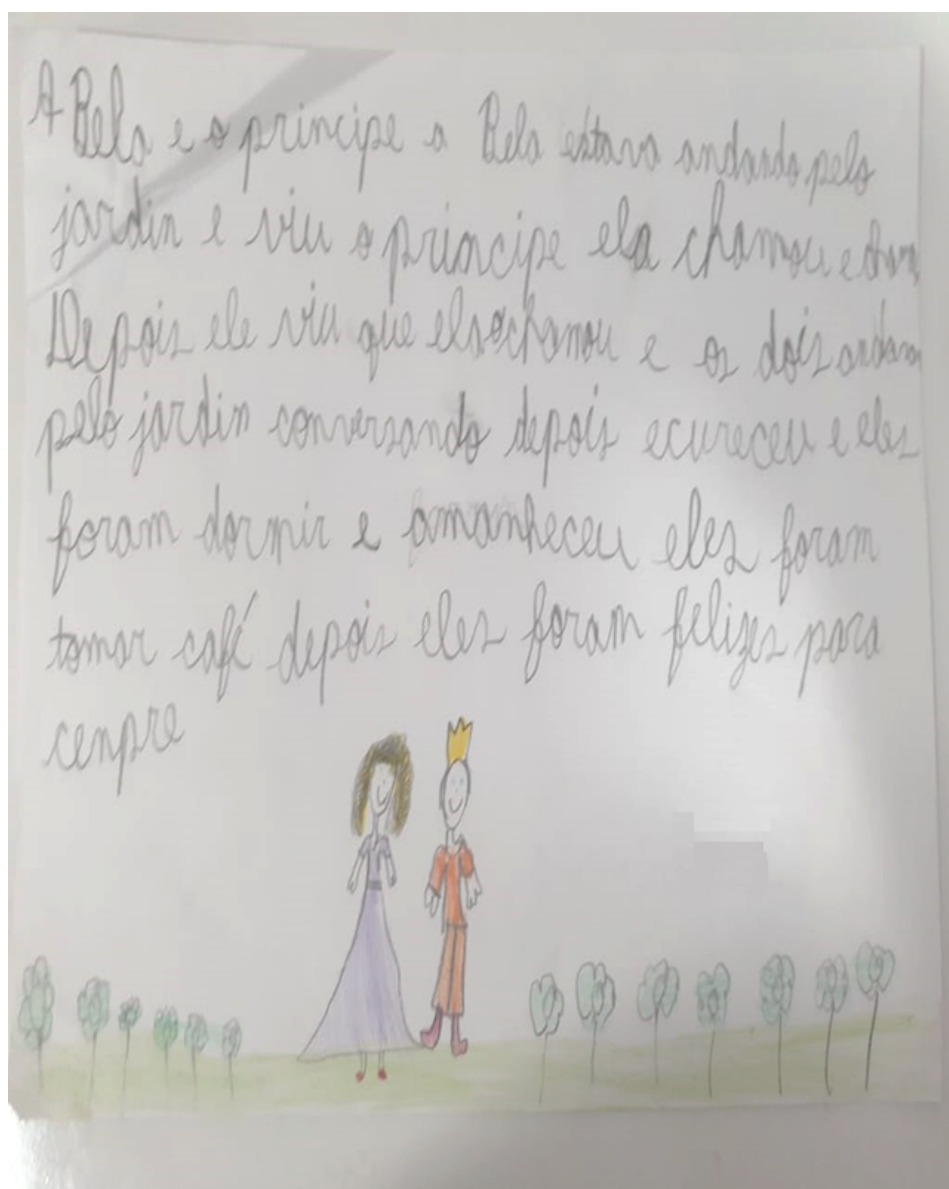 A Bela e o principe a Bela estava andando pelo
jardin e viu o principe ela chamou e
Depois ele viu que elaochamou e os dois
pelo jardin conversando depois ecureceu e eles
foram dormir e amanheceu eles foram
tomar café depois eles foram felizes para
cenpre